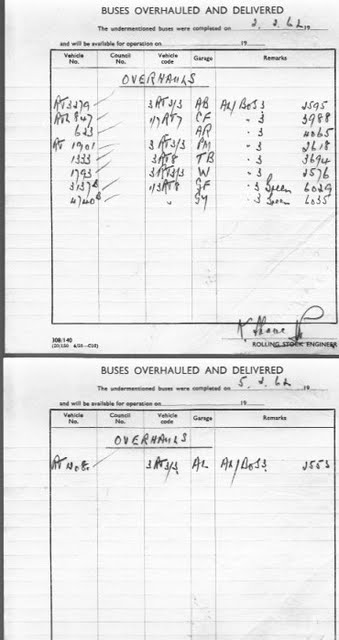 BUSES OVERHAULED AND DELIVERED
The undermentioned buses were completed on 2. 2. 62 19
and will be available for operation on 19
Vehicle No. Council No. Vehicle code Garage Remarks
OVERHAULS
RT3279 3RT3/3 AB AV/BOSS 2595
RTL 847 1/7RT7 CF " 3 3988
623 AR " 3 4065
RT 1901 3 RT3/3 PM " 3 2618
1333 3RT8 TB " 3 3694
1793 3RT3/3 W " 3 2576
3137 1/3RT8 GF " 3 Green 6029
4740 " GY " 3 Green 6035
308/140
ROLLING STOCK ENGINEER
BUSES OVERHAULED AND DELIVERED
The undermentioned buses were completed on 5. 2. 62 19
and will be available for operation on 19
Vehicle No. Council No. Vehicle code Garage Remarks
OVERHAULS
3RT3/3 AL 2553